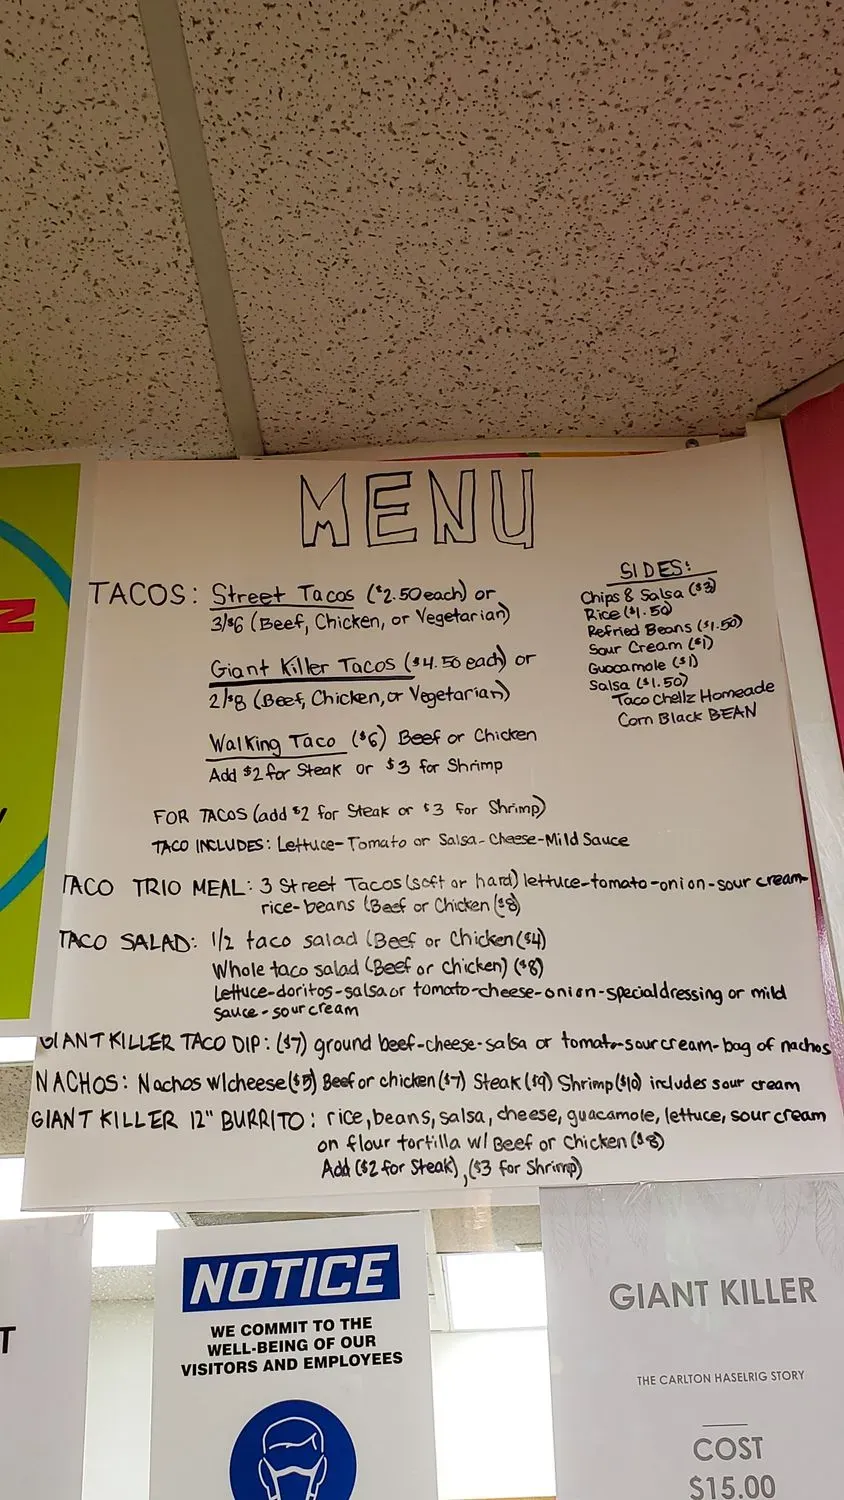 MENU
TACOS: Street Tacos ($2.50 each) or
3/$6 (Beef, Chicken, or Vegetarian)
Giant Killer Tacos ($4.50 each) or
2/$8 (Beef, Chicken, or Vegetarian)
Walking Taco ($6) Beef or Chicken
Add $2 for Steak or $3 for Shrimp
FOR TACOS (add $2 for Steak or $3 for Shrimp)
TACO INCLUDES: Lettuce-Tomato or Salsa-Cheese-Mild Sauce
SIDES:
Chips & Salsa ($3)
Rice ($1.50)
Refried Beans ($1.50)
Sour Cream ($1)
Guocamole ($1)
Salsa ($1.50)
Taco Chellz Homeade
Corn Black BEAN
TACO TRIO MEAL: 3 Street Tacos (soft or hard) lettuce-tomato-onion-sour cream-
rice-beans (Beef or Chicken ($8)
TACO SALAD: 1/2 taco salad (Beef or Chicken ($4)
Whole taco salad (Beef or Chicken) ($8)
Lettuce-doritos-salsa or tomato-cheese-onion-special dressing or mild
sauce-sour cream
GIANT KILLER TACO DIP: ($7) ground beef-cheese-salsa or tomato-sour cream-bag of nachos
NACHOS: Nachos w/cheese ($5) Beef or chicken ($7) Steak ($9) Shrimp ($10) includes sour cream
GIANT KILLER 12" BURRITO: rice, beans, salsa, cheese, guacamole, lettuce, sour cream
on flour tortilla w/ Beef or Chicken ($8)
Add ($2 for Steak), ($3 for Shrimp)
NOTICE
WE COMMIT TO THE
WELL-BEING OF OUR
VISITORS AND EMPLOYEES
GIANT KILLER
THE CARLTON HASELRIG STORY
COST
$15.00